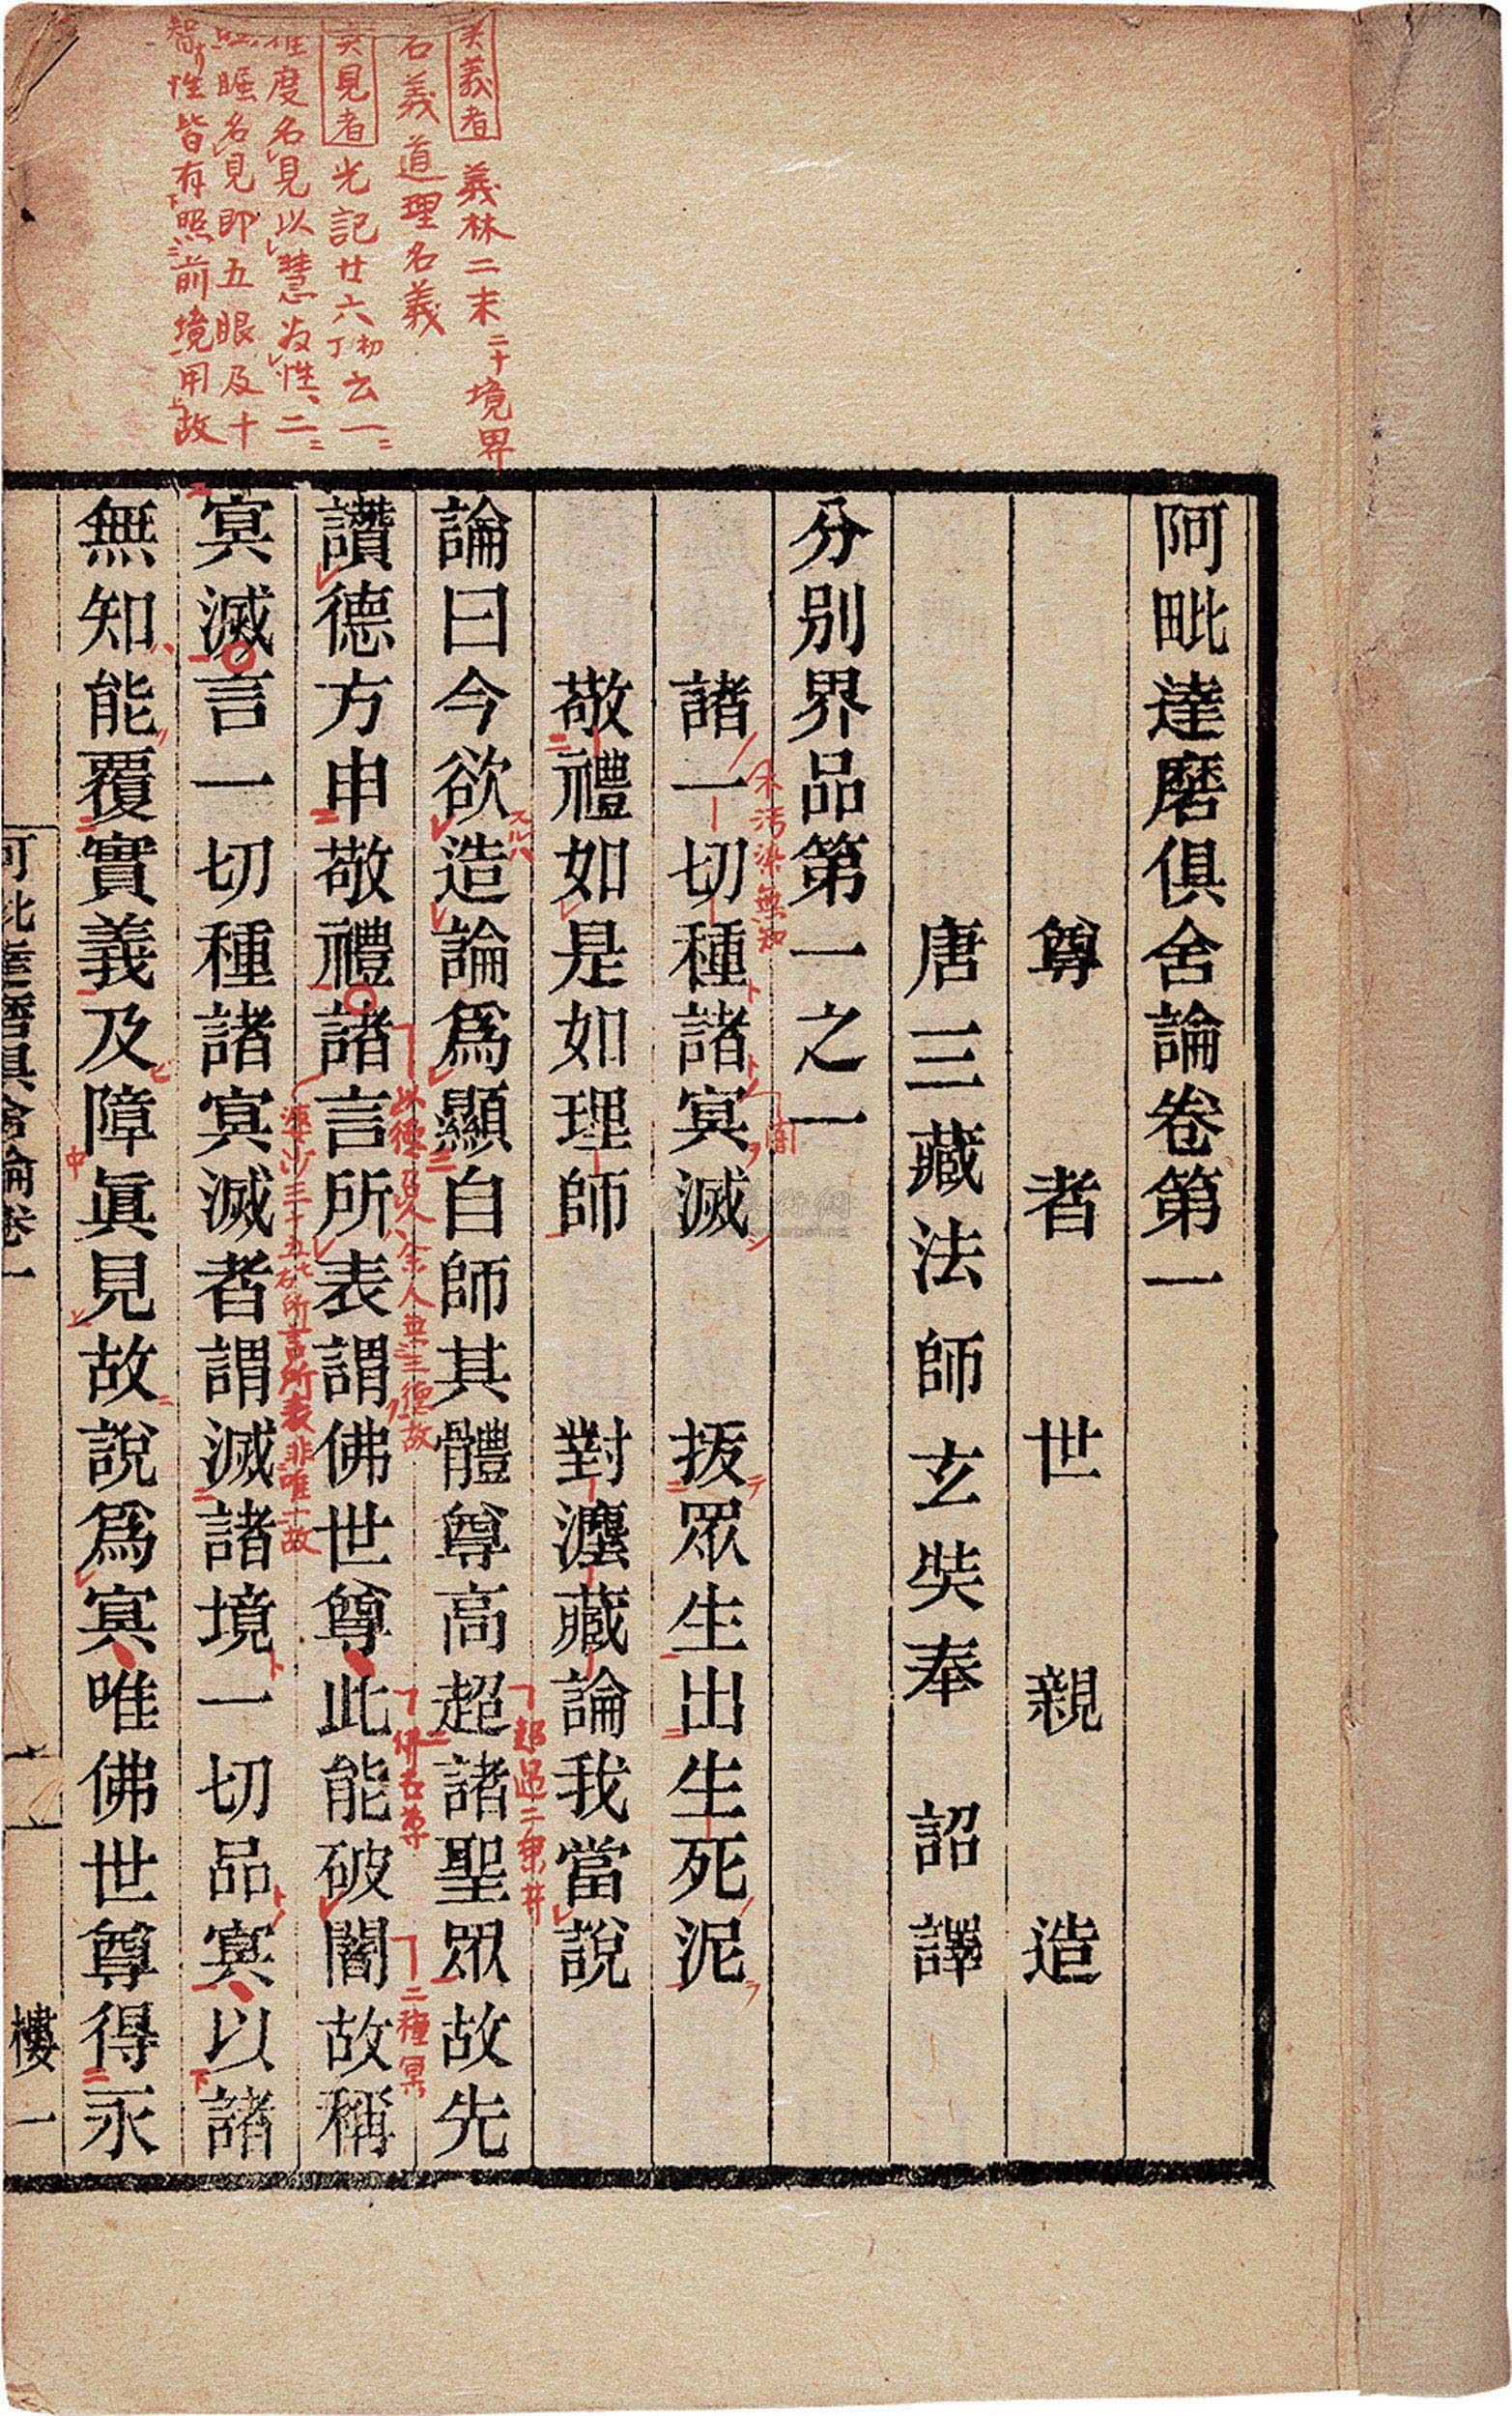 阿毗達磨俱舍論卷第一
尊者世親造
唐三藏法師玄奘奉　詔譯
分別界品第一之一
諸一切種諸冥滅　拔眾生出生死泥
敬禮如是如理師　對法藏論我當說
論曰今欲造論為顯自師其體尊高超諸聖眾故先
讚德方申敬禮諸言所表謂佛世尊此能破闇故稱
冥滅言一切種諸冥滅者謂滅諸境一切品冥以諸
無知能覆實義及障真見故說為冥唯佛世尊得永
阿毗達磨俱舍論卷一
樓一
義者 義林二末二十境界
名義道理名義
見者 光記廿六初丁云一
度名見以慧為性二
眼名見即五眼及十
智性皆有照前境用故
不污染無知
闇
スルハ
超過二乘
以德及人余人無三德故
佛世尊
二種冥
三十五所言所表非唯一故